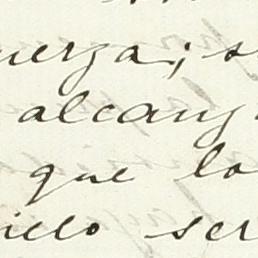 uerza; s
alcanz
que lo
ielo ser